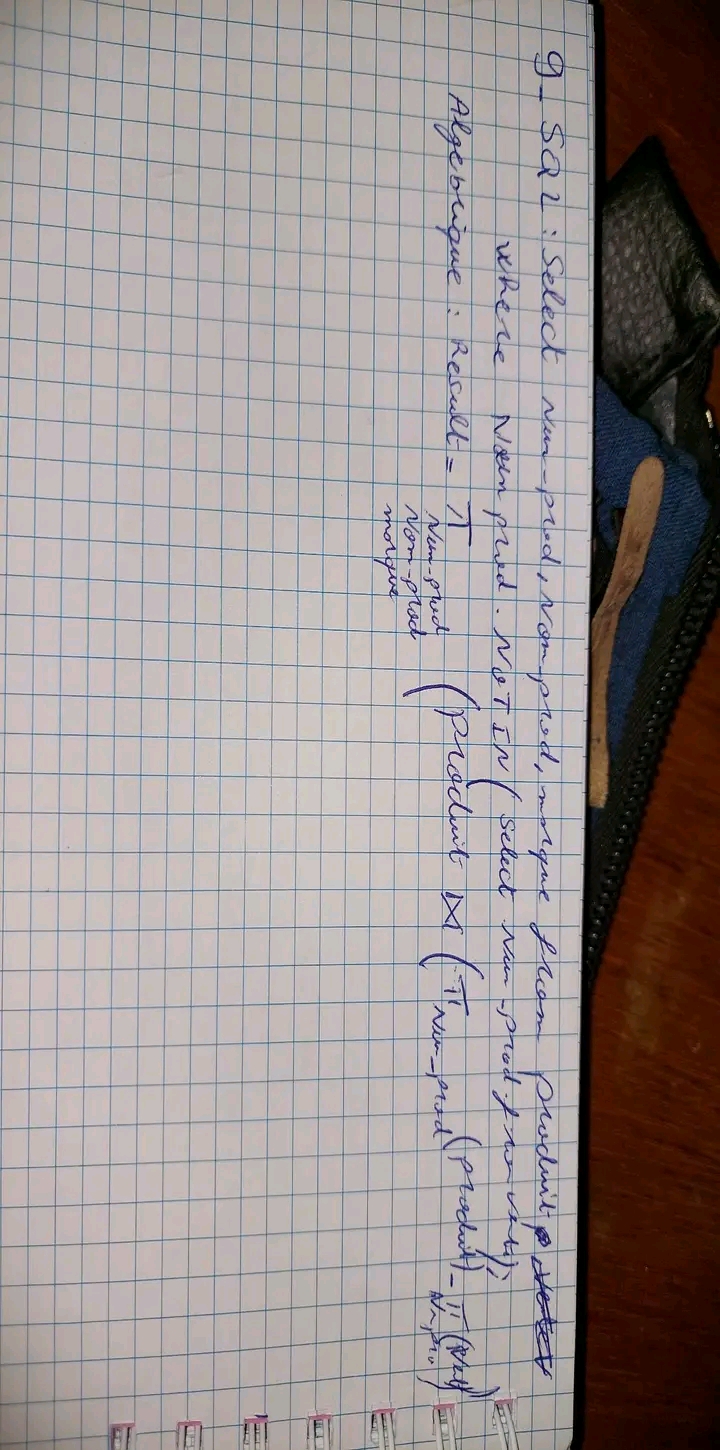 9- SQL : Select Num-prod, Nom-prod, marque from produit
where Num prod. NOT IN ( Select Num-prod from vente);
Algebrique : Result = π Num-prod Nom-prod marque ( Produit ⋈ ( π Num-prod (produit) - π (Vent) ) )